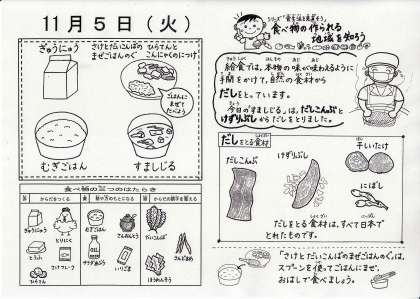 11月5日（火）
ぎゅうにゅう
さけとだいこんぱの
まぜごはんのぐ
ひらてんと
こんにゃくのにつけ
ごはんに
まぜて
たべよう
むぎごはん
すましじる
食べ物の三つのはたらき
赤 からだをつくる
黄 熱や力のもとになる
緑 からだの調子を整える
ぎゅうにゅう
とりにく
とうふ
さけフレーク
ひらてん
むぎごはん
こんにゃく
サラダあぶら
いりごま
だいこんば
にんじん
ほうれんそう
シリーズ「食生活を見直そう」
食べ物の作られる
地域を知ろう
給食では、本物の味が伝えるように
手間をかけて、自然の食材から
だしをとっています。
今日の「すましじる」は、だしこんぶと
けずりぶしからだしをとりました。
だしをとる食材
だしこんぶ
けずりぶし
干しいたけ
にぼし
だしをとる食材は、すべて日本で
とれたものです。
「さけとだいこんばのまぜごはんのぐ」は、
スプーンを使ってごはんにまぜ、
おはしで食べましょう。